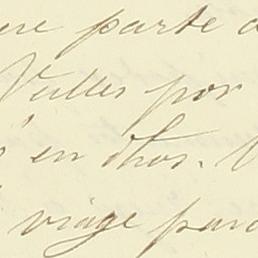 parte a
Valles por
en dhos.
viage para